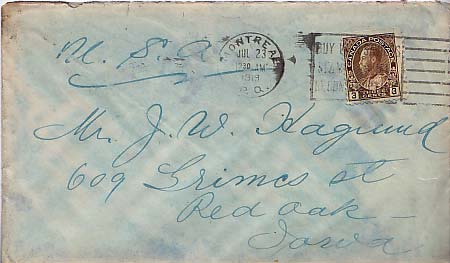 U. S. A.
MONTREAL
JUL 23
1919
P. Q.
BUY
CANADA POSTAGE
3 CENTS 3
Mr. J. W. Haglund
609 Grimes st
Red Oak –
Iowa